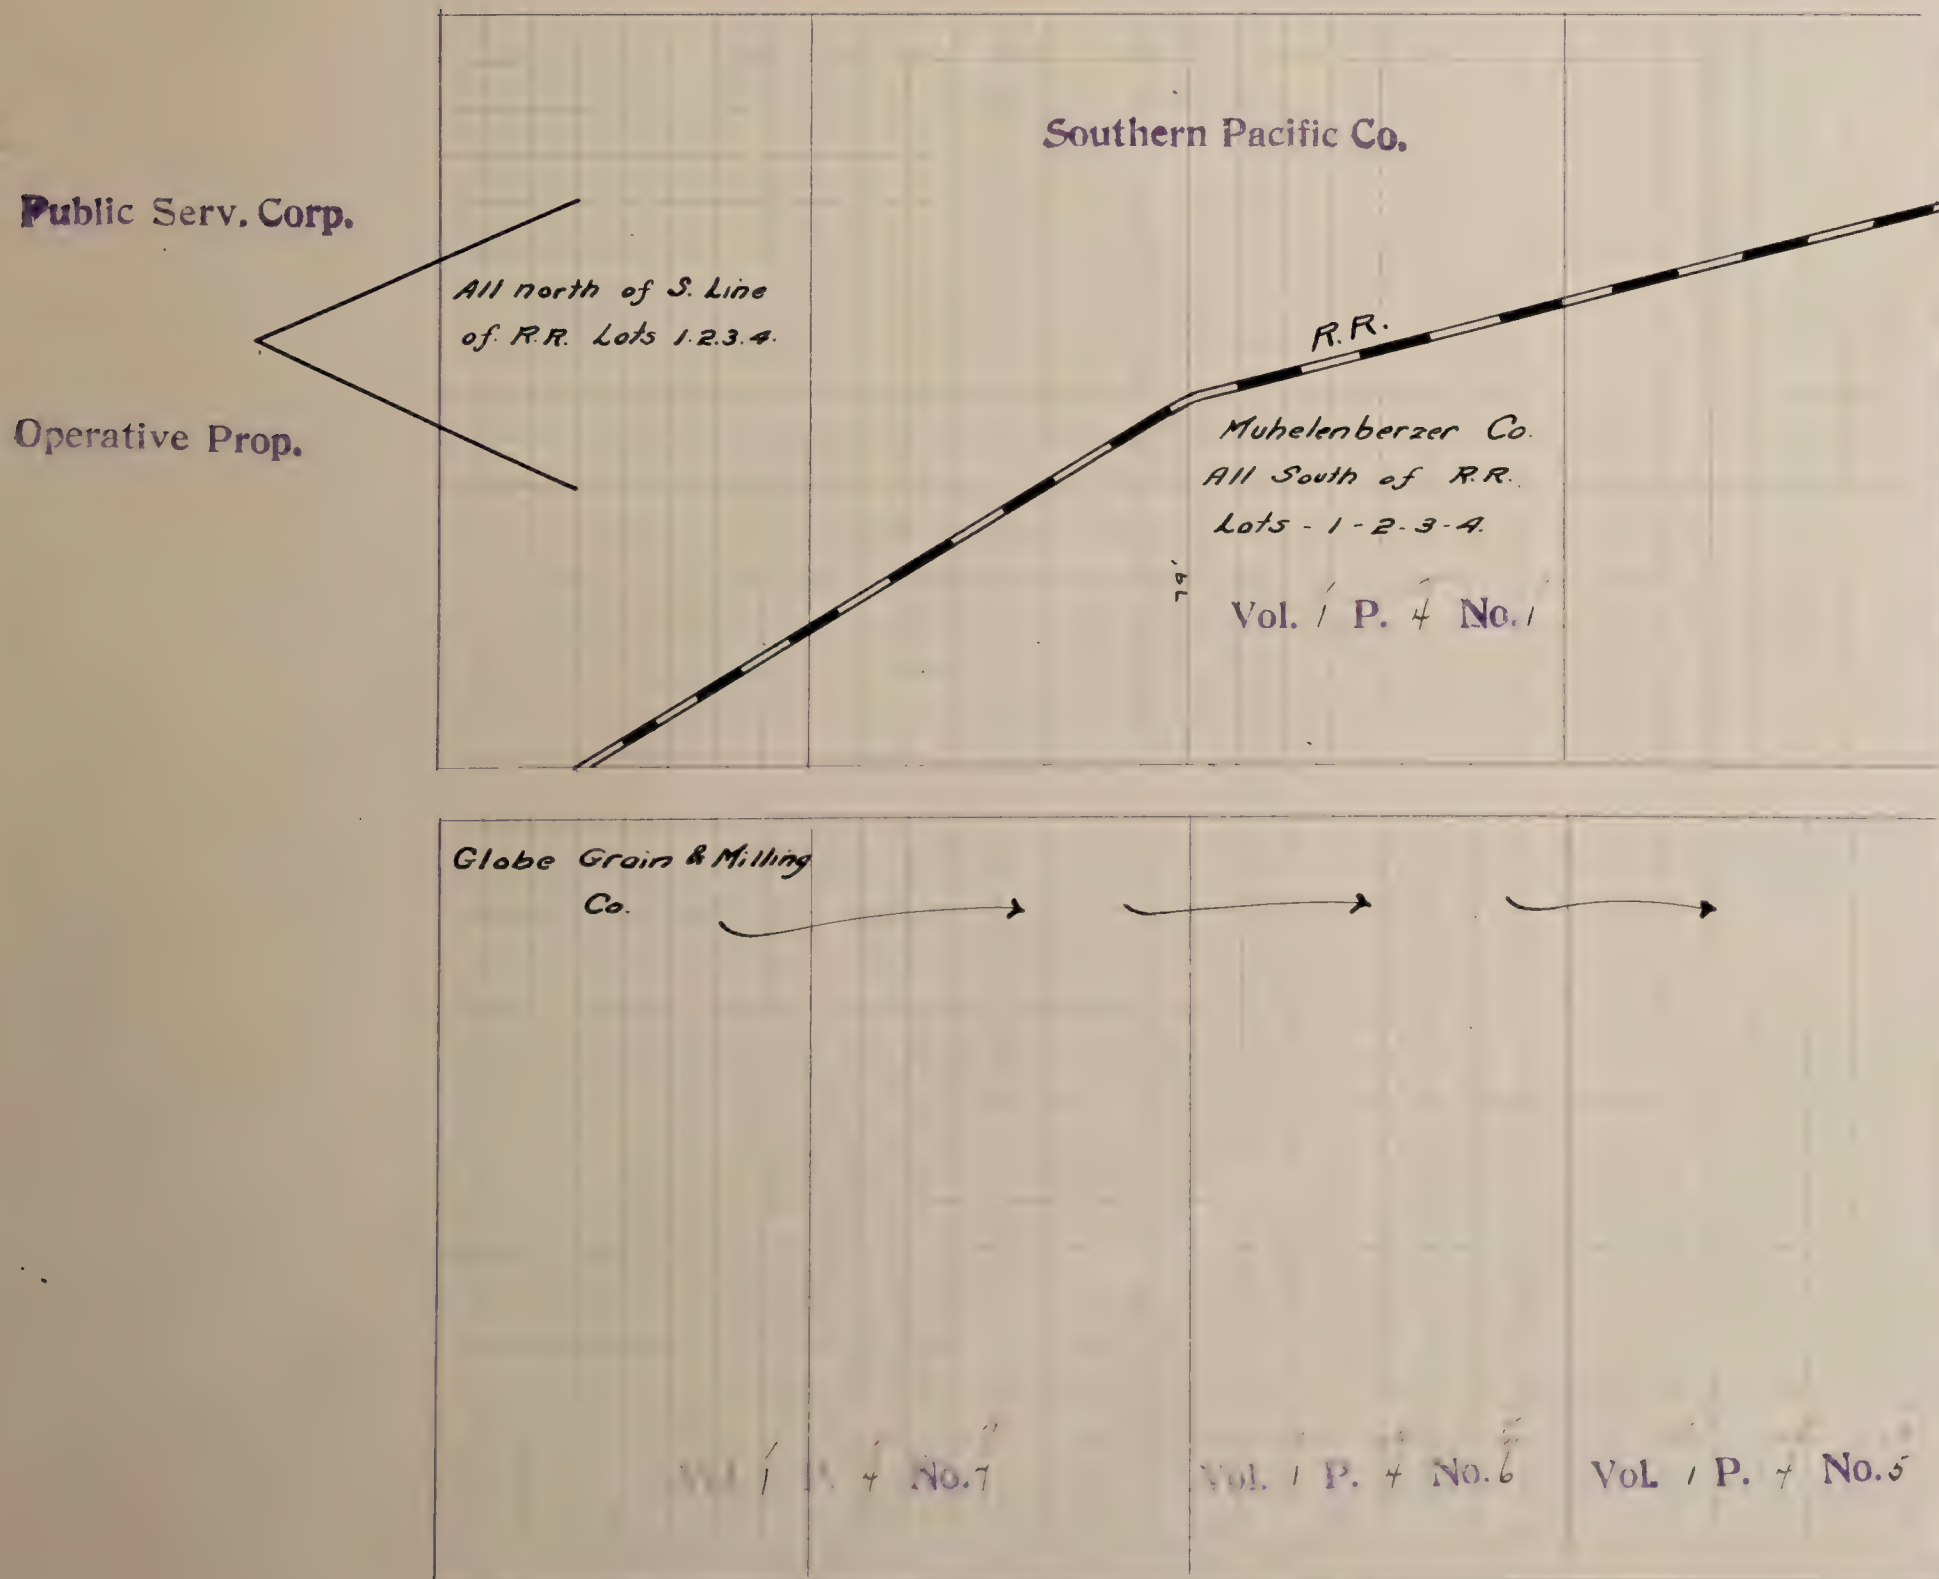 Southern Pacific Co.
Public Serv. Corp.
All north of S. Line
of R.R. Lots 1.2.3.4.
R.R.
Operative Prop.
Muhelenberzer Co.
All South of R.R.
Lots - 1 - 2 - 3 - 4.
79'
Vol. 1 P. 4 No. 1
Globe Grain & Milling
Co.
Vol. 1 P. 4 No. 7
Vol. 1 P. 4 No. 6
Vol. 1 P. 4 No. 5